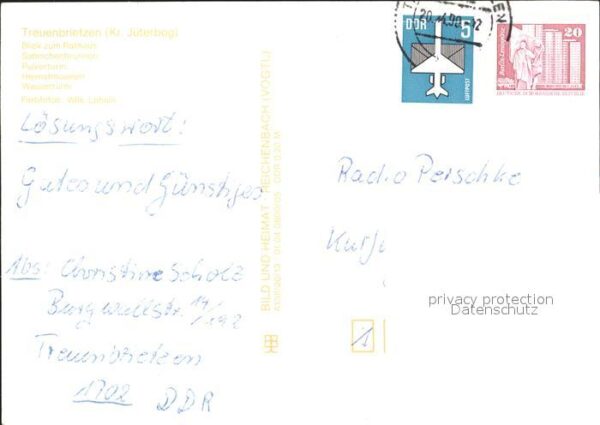 Treuenbrietzen (Kr. Jüterbog)
Blick zum Rathaus
Sabinchenbrunnen
Pulverturm
Heimatmuseum
Wasserturm
Lösungswort:
Gutes und Günstiges
Abs: Christine Scholz
Burgwallstr.
Treuenbrietzen
1702 DDR
BILD UND HEIMAT REICHENBACH (VOGTL)
DDR 5
LUFTPOST
20
Radio Perschke
privacy protection
Datenschutz
1